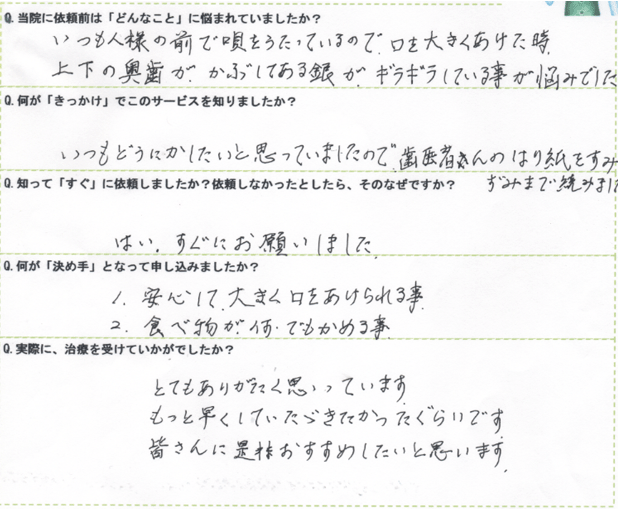 Q.当院に依頼前は「どんなこと」に悩まれていましたか？
いつも人様の前で唄をうたっているので、口を大きくあけた時
上下の奥歯が、かぶしてある銀が、ギラギラしている事が悩みでした
Q.何が「きっかけ」でこのサービスを知りましたか？
いつもどうにかしたいと思っていましたので、歯医者さんのはり紙をすみ
ずみまで読みました
Q.知って「すぐ」に依頼しましたか？依頼しなかったとしたら、そのなぜですか？
はい。すぐにお願いしました
Q.何が「決め手」となって申し込みましたか？
1. 安心して、大きく口をあけられる事
2. 食べ物が何でもかめる事
Q.実際に、治療を受けていかがでしたか？
とてもありがたく思いっています
もっと早くしていただきたかったぐらいです
皆さんに是非おすすめしたいと思います。